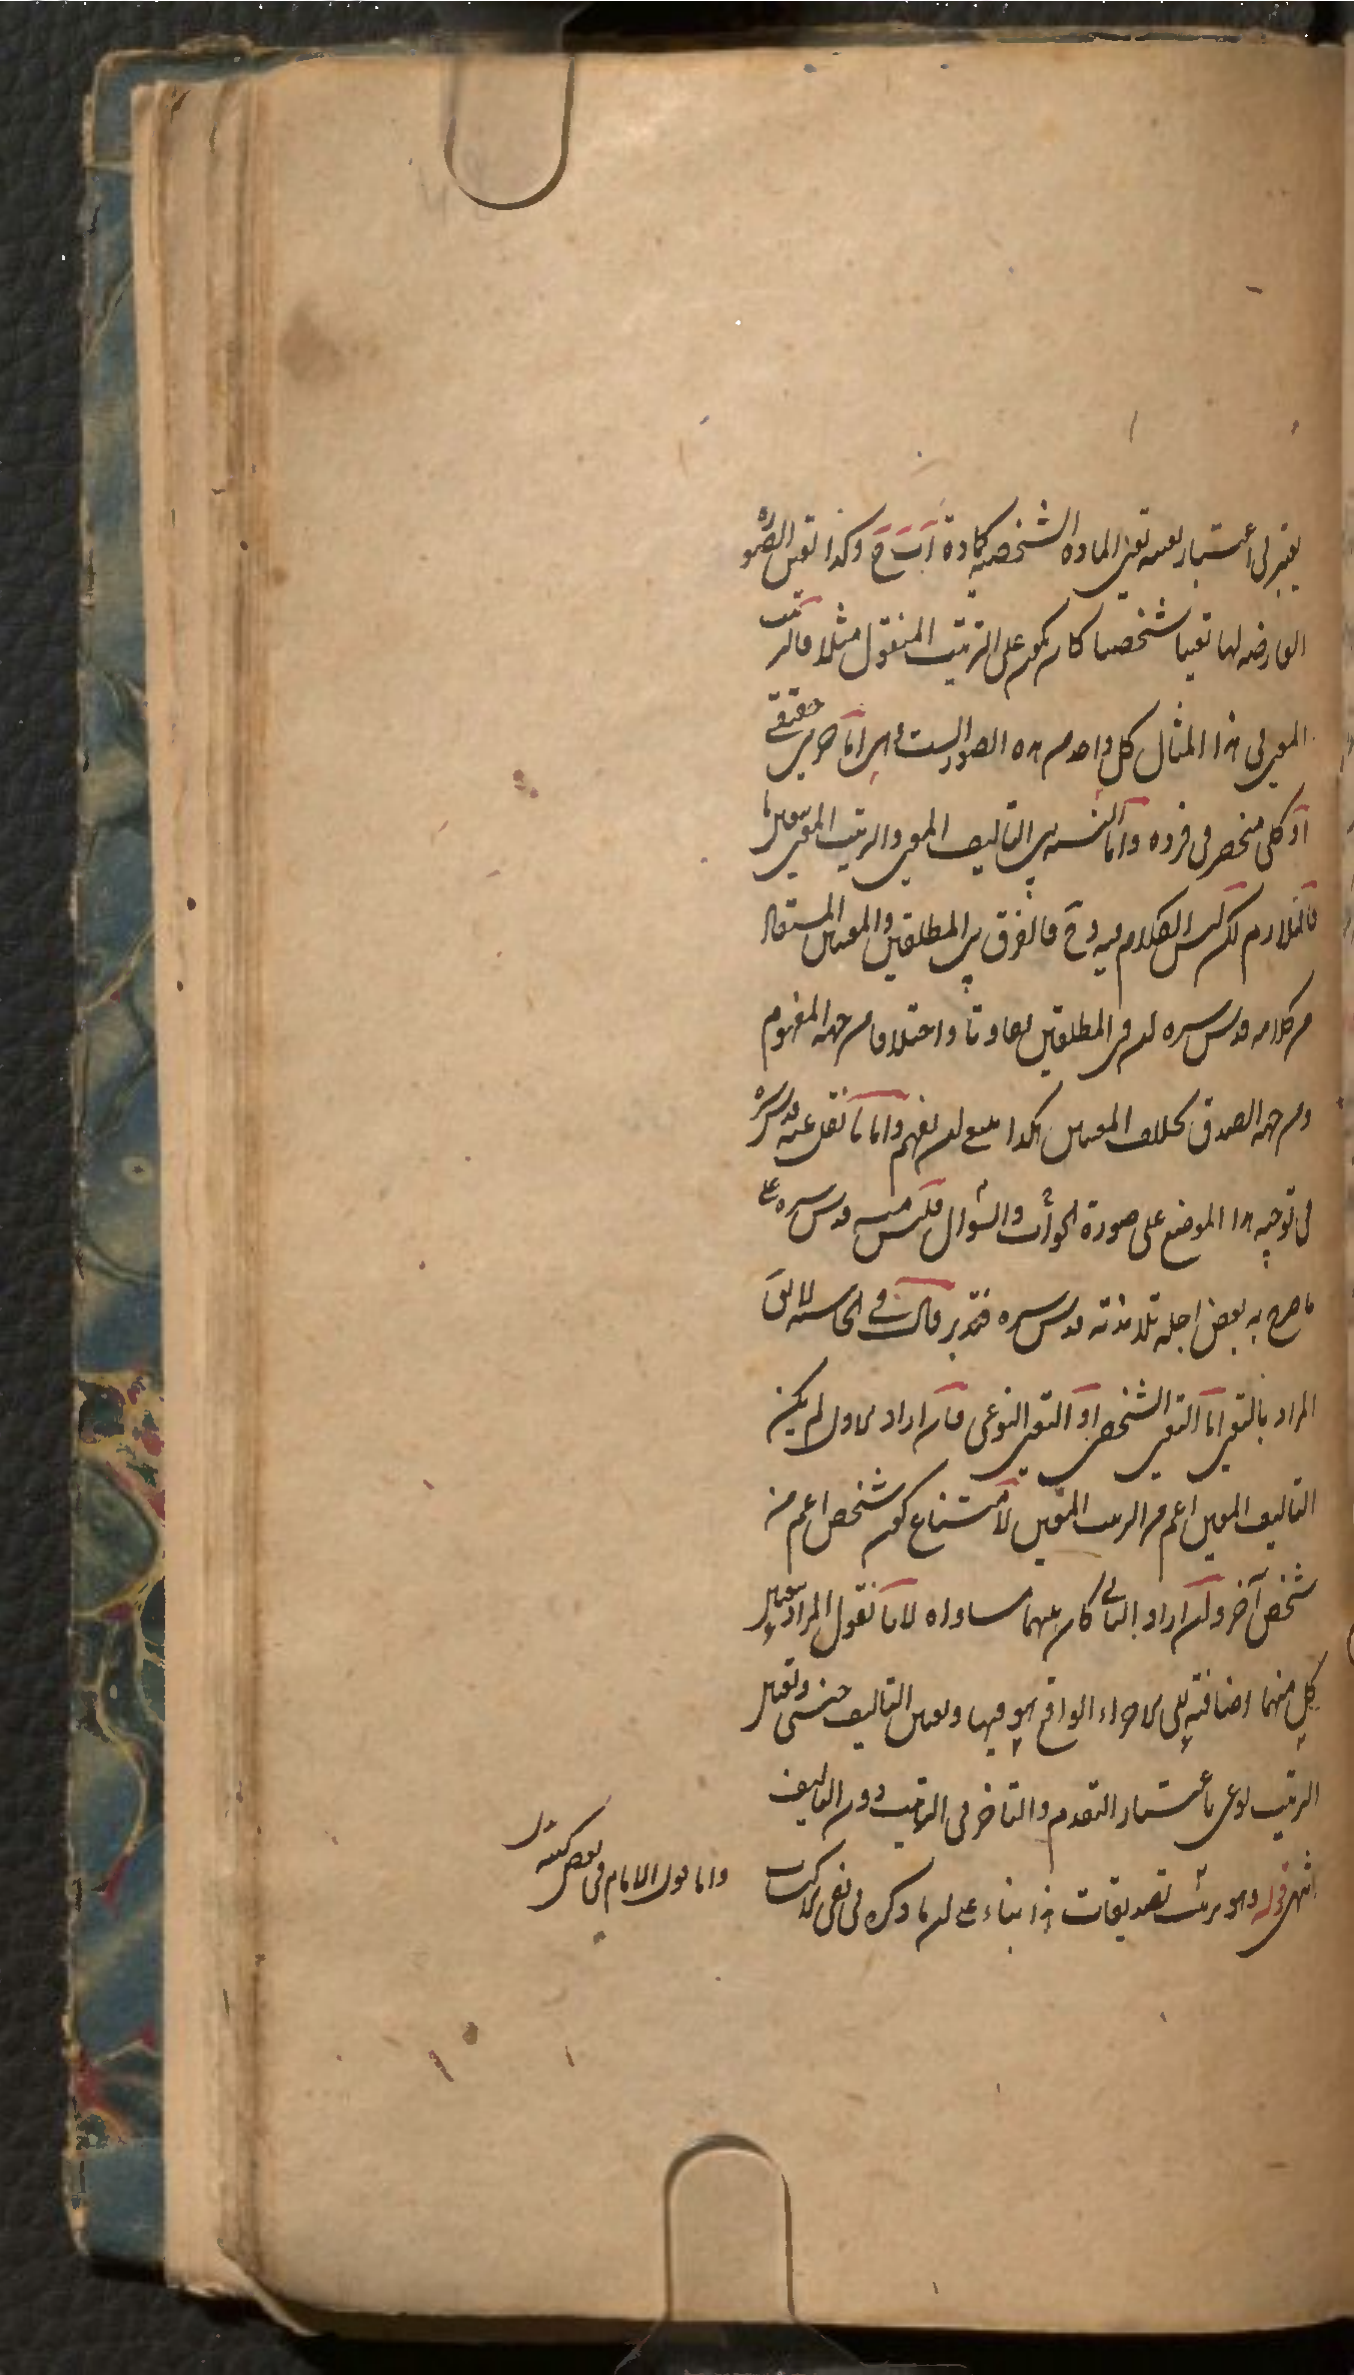 يعتبر في اعتبار تعينه تعين المادة الشخصية كمادة آ ب ج وكذا تعين الصورة
العارضة لها تعينا شخصيا كان يكون على الترتيب المنقول مثلا فالترتيب
المعين في هذا المثال كل واحد من هذه الصور الست هي اما جزئي حقيقي
او كلي منحصر في فرده واما النسبة بين التأليف المعين والترتيب المعين
فالتلازم لكن ليس الكلام فيه وح فالفرق بين المطلقين والمعينين المستفاد
من كلامه قدس سره ان في المطلقين تفاوتا واختلافا من جهة المفهوم
ومن جهة الصدق بخلاف المعينين هكذا ينبغي ان يفهم واما ما نقل عنه قدس سره
في توجيه هذا الموضع على صورة الجواب والسؤال فليس منه قدس سره على
ما صرح به بعض اجلة تلامذته قدس سره فتدبر قال في الحاشية لا يقال
المراد بالتعين اما التعين الشخصي او التعين النوعي فان اراد الاول لم يكن
التأليف المعين اعم من الترتيب المعين لامتناع كون شخص اعم من
شخص آخر وان اراد الثاني كان بينهما مساواة لانا نقول المراد بتعين
كل منهما اضافته الى الاجزاء الواقع هو فيها وتعين التأليف جنسي وتعين
الترتيب نوعي باعتبار التقدم والتأخر في الترتيب دون التأليف
انتهى قوله وهو يرتب تصديقات هذا بناء على ان ما ذكره في نفي اكتساب
واما قول الامام في بعض كتبه